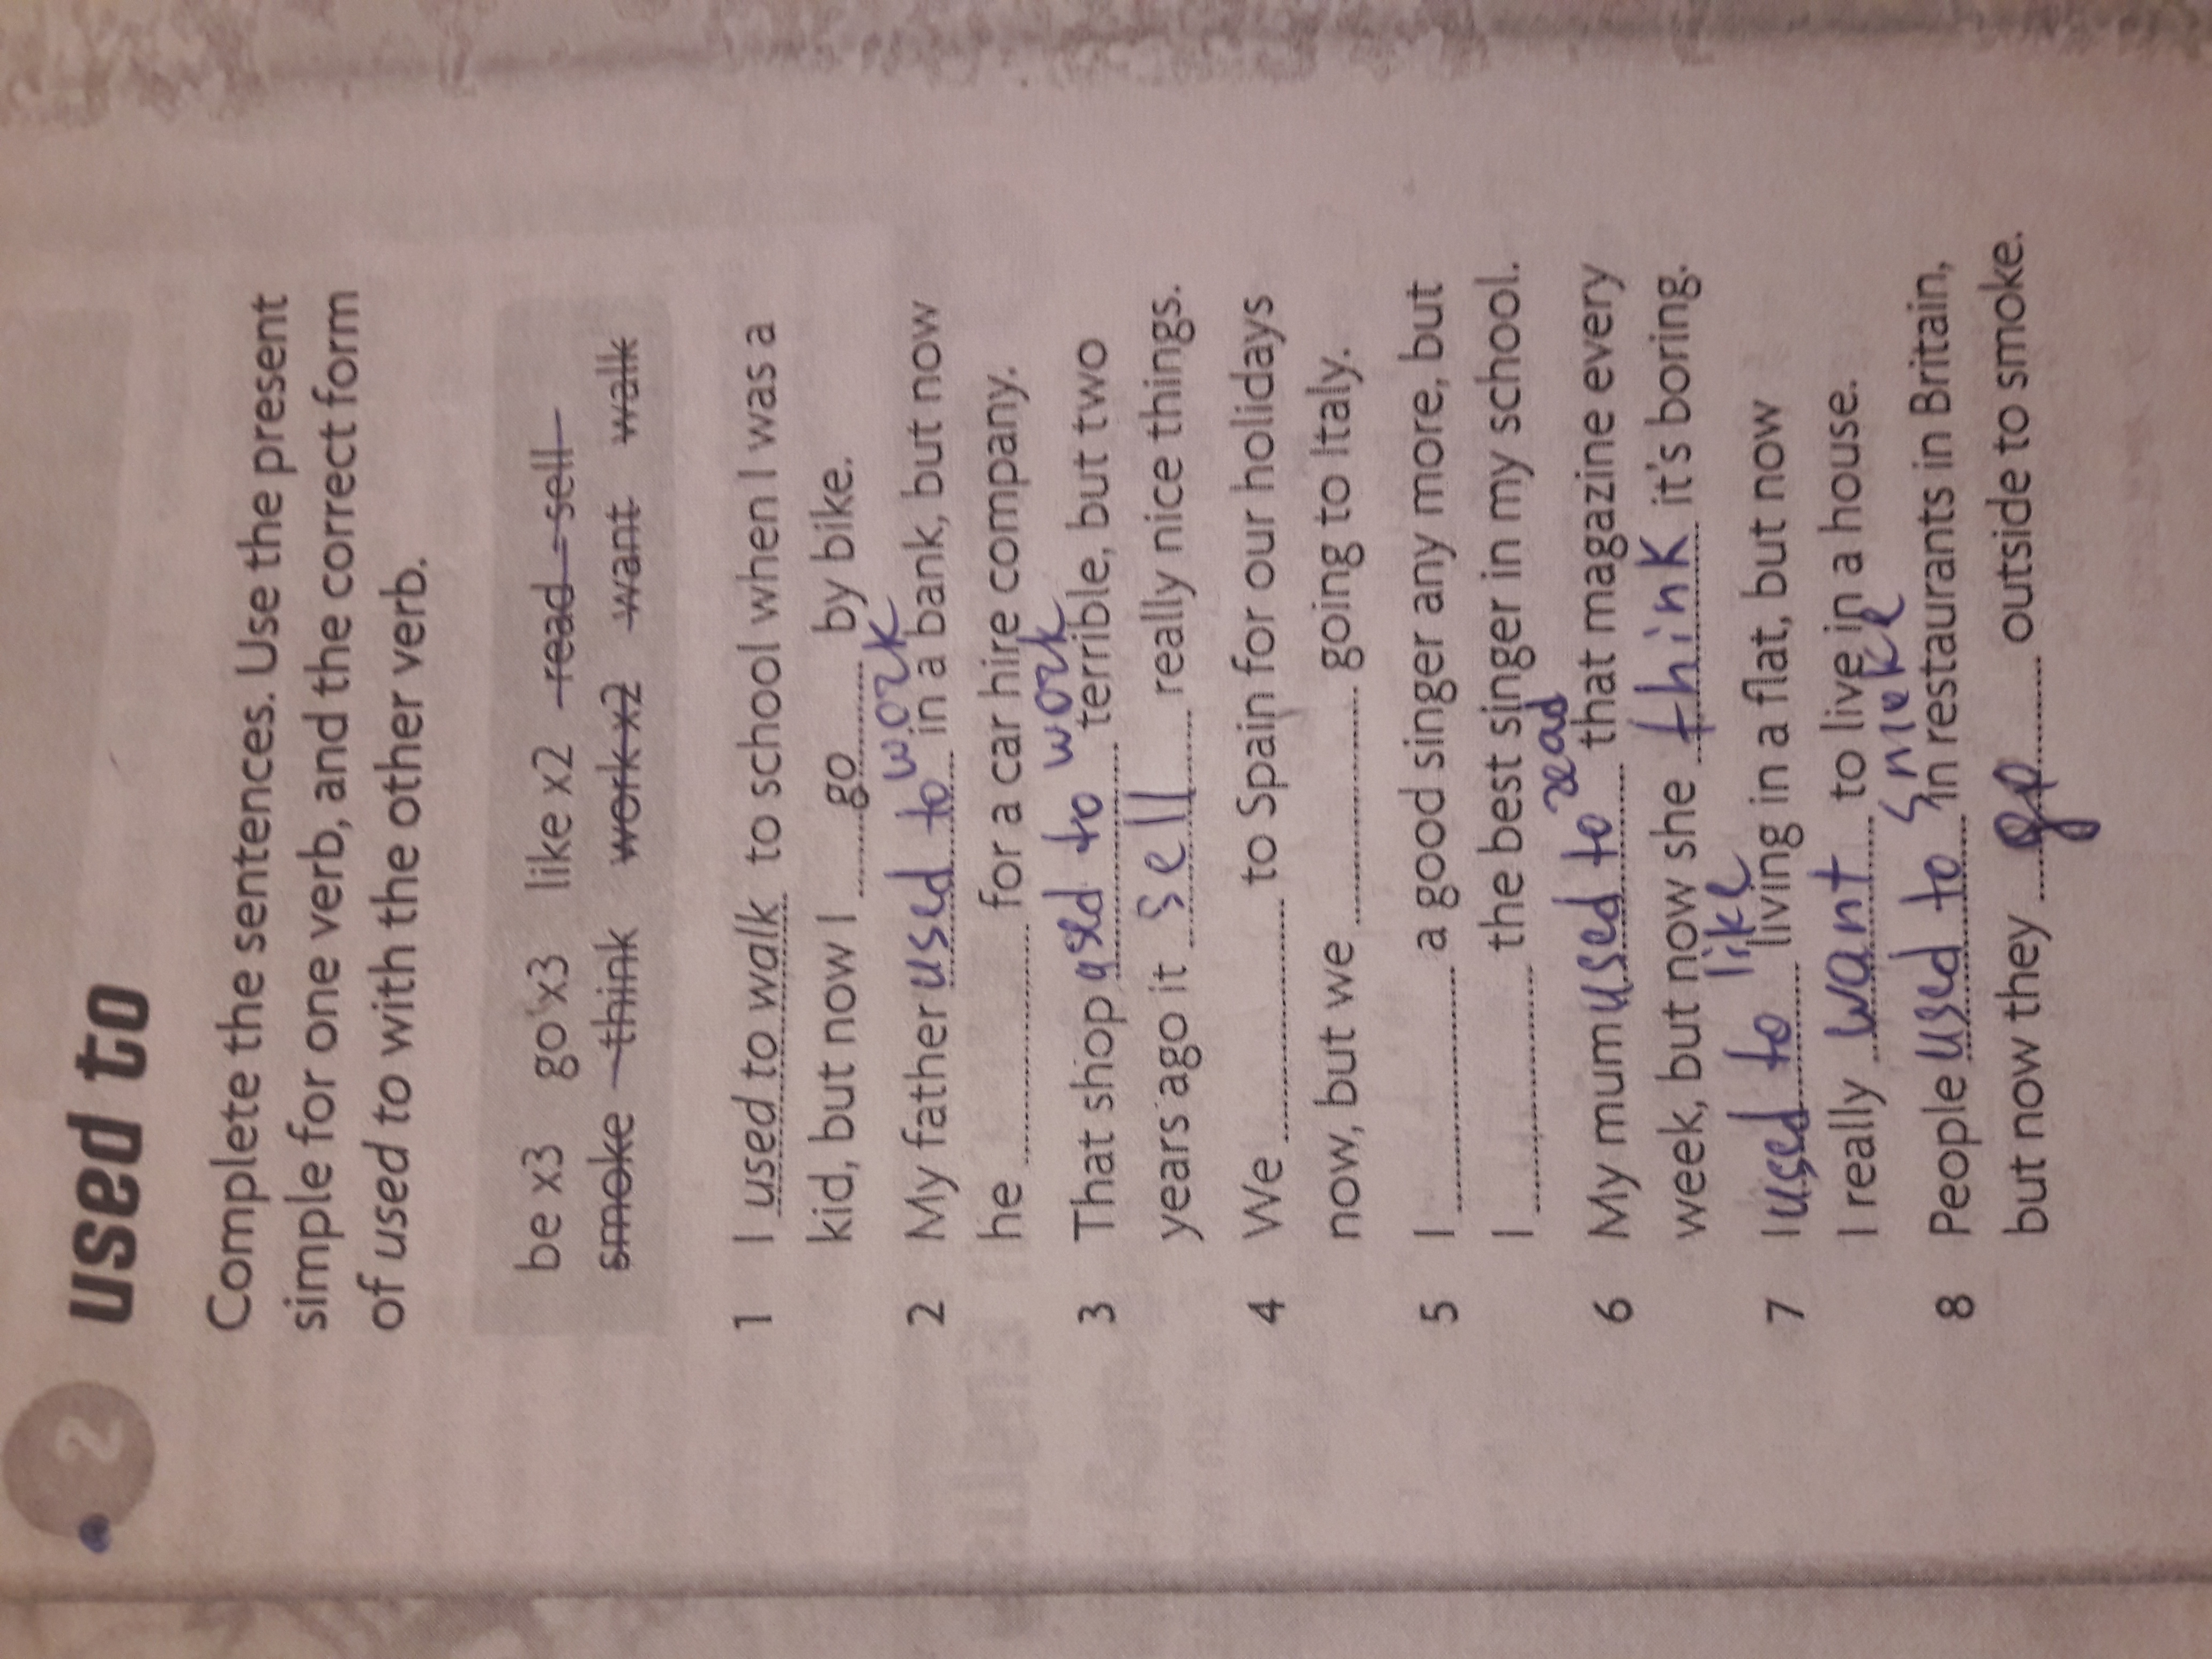 2 used to
Complete the sentences. Use the present
simple for one verb, and the correct form
of used to with the other verb.
be x3 go x3 like x2 read sell
smoke think work x2 want walk
1 I used to walk to school when I was a
kid, but now I go by bike.
2 My father used to work in a bank, but now
he for a car hire company.
3 That shop used to work terrible, but two
years ago it sell really nice things.
4 We to Spain for our holidays
now, but we going to Italy.
5 I a good singer any more, but
I the best singer in my school.
6 My mum used to read that magazine every
week, but now she think it's boring.
7 I used to like living in a flat, but now
I really want to live in a house.
8 People used to smoke in restaurants in Britain,
but now they go outside to smoke.